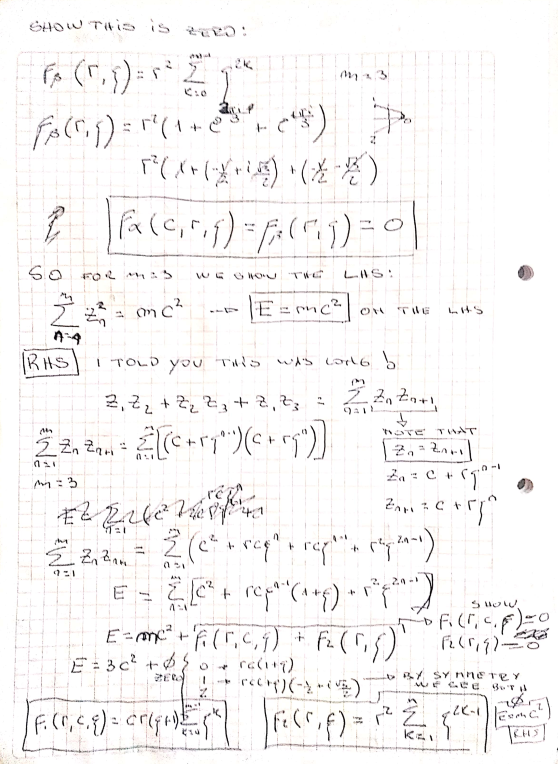 SHOW THIS IS ZERO:
Fβ(r,ξ) = r² Σ_{k=0}^{m-1} ξ^{2k}   m=3
Fβ(r,ξ) = r²(1 + e^{2πi/3} + e^{4πi/3})
r²(1 + (-1/2 + i√3/2) + (-1/2 - √3/2)
Fα(c,r,ξ) = Fβ(r,ξ) = 0
SO FOR m=3 WE SHOW THE LHS:
Σ^{m} z_n² = mc² --> E = mc² ON THE LHS
RHS I TOLD YOU THIS WAS LONG
z₁z₂ + z₂z₃ + z₁z₃ = Σ_{n=1}^{m} z_n z_{n+1}
NOTE THAT
Σ_{n=1}^{m} z_n z_{n+1} = Σ_{n=1}^{m} [(c+rξ^{n-1})(c+rξ^n)]
z_n = z_{n+1}
m=3
z_n = c + rξ^{n-1}
z_{n+1} = c + rξ^n
Σ_{n=1}^{m} z_n z_{n+1} = Σ_{n=1}^{m} (c² + rcξ^n + rcξ^{n-1} + r²ξ^{2n-1})
E = Σ_{n=1}^{m} [c² + rcξ^{n-1}(1+ξ) + r²ξ^{2n-1}]
SHOW
E = mc² + F₁(r,c,ξ) + F₂(r,ξ)
F₁(r,c,ξ)=0
F₂(r,ξ)=0
E = 3c² + ϕ
ZERO
0 → rc(1+ξ)
1 → rc(1+ξ)(-1/2 + i√3/2)
2
BY SYMMETRY
WE SEE BOTH
ϕ
E=mc²
RHS
F₁(r,c,ξ) = cr(ξ+1) Σ_{k=0}^{m-1} ξ^k
F₂(r,ξ) = r² Σ_{k=1}^{n} ξ^{2k-1}